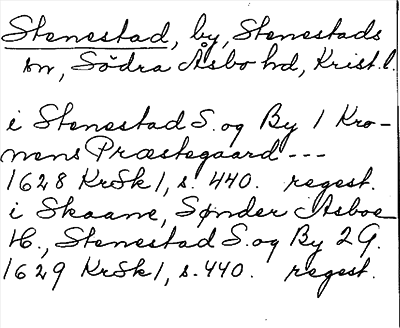 Stenestad, by, Stenestads
sn, Södra Åsbo hd, Krist.l.
i Stenestad S. og By 1 Kro-
nens Præstegaard ---
1628 KrSk 1, s. 440. regest.
i Skaane, Sønder Asboe
H., Stenestad S. og By 2 G.
1629 KrSk 1, s. 440. regest.